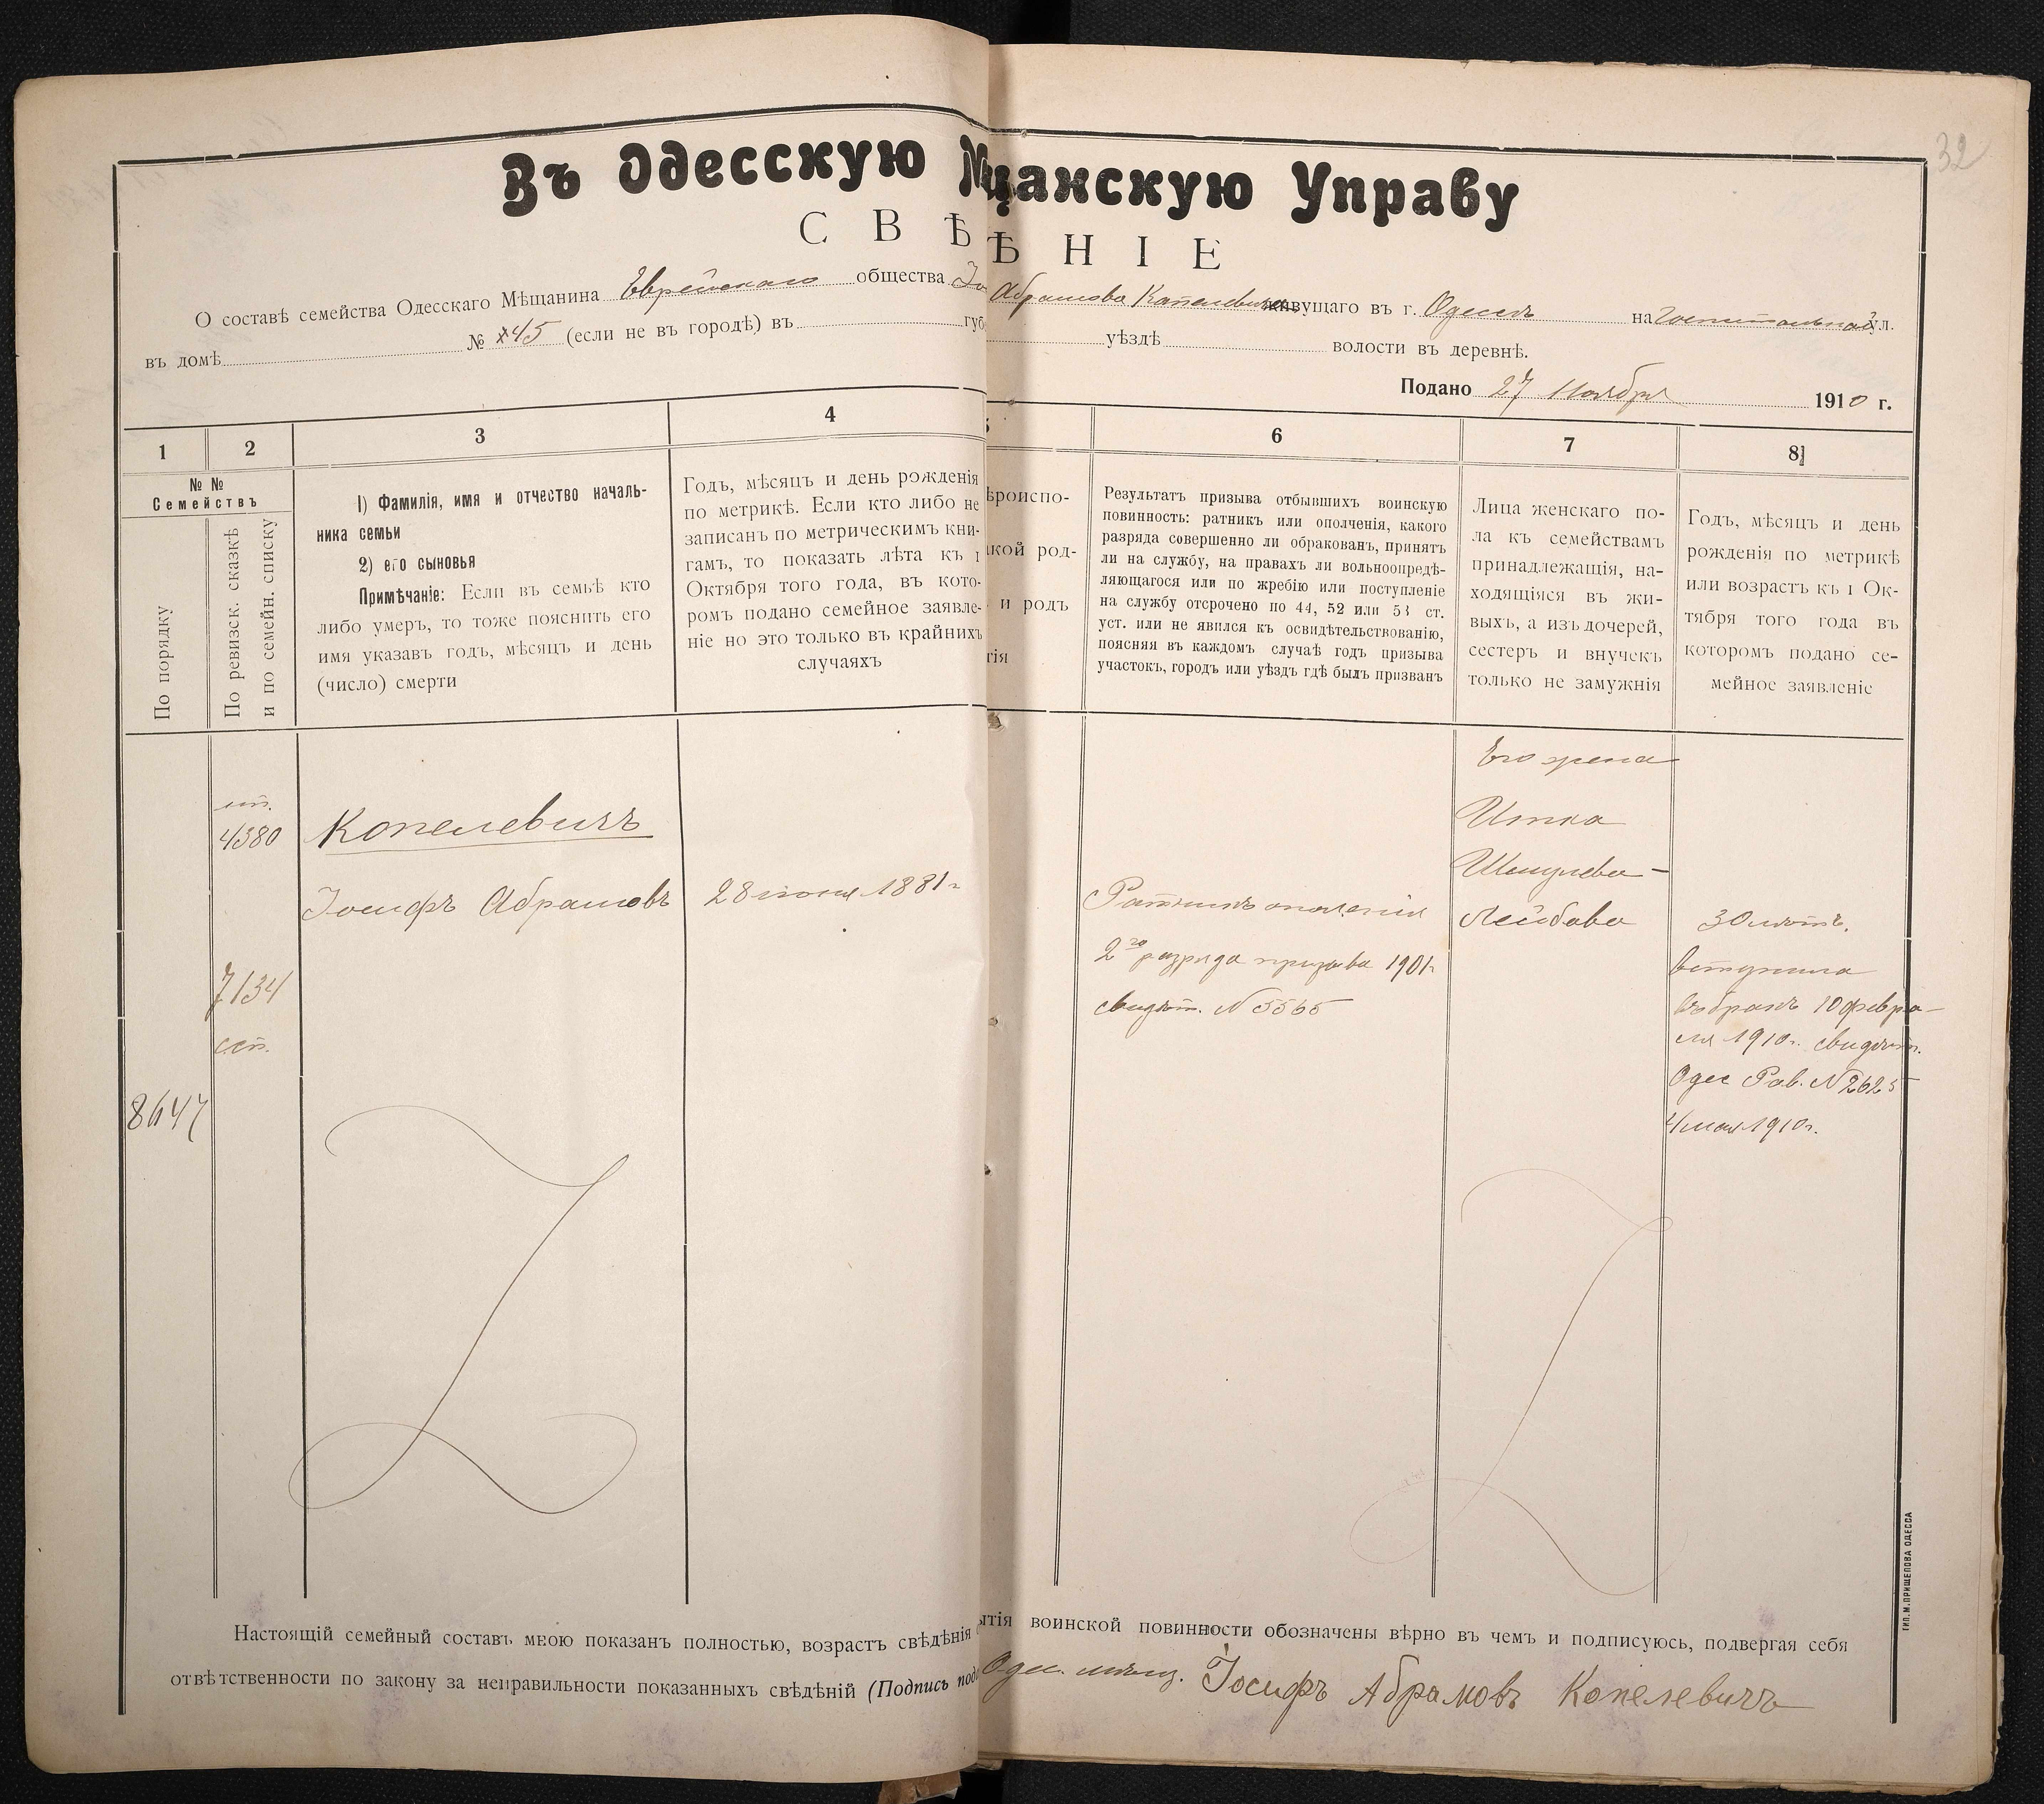 32
Въ Одесскую М
щанскую Управу
С В Ѣ
Ѣ Н І Е
О составѣ семейства Одесскаго Мѣщанина Еврейскаго общества Іо
Абрамова Капелевича живущаго въ г. Одессѣ на Госпитальной ул.
въ домѣ № 45 (если не въ городѣ) въ губ
уѣздѣ волости въ деревнѣ.
Подано 27 Ноября 1910 г.
1
2
3
4
6
7
8
№ №
Семействъ
По порядку
По ревизск. сказкѣ
и по семейн. списку
1) Фамилія, имя и отчество началь-
ника семьи
2) его сыновья
Примѣчаніе: Если въ семьѣ кто
либо умеръ, то тоже пояснить его
имя указавъ годъ, мѣсяцъ и день
(число) смерти
Годъ, мѣсяцъ и день рожденія
по метрикѣ. Если кто либо не
записанъ по метрическимъ кни-
гамъ, то показать лѣта къ 1
Октября того года, въ кото-
ромъ подано семейное заявле-
ніе но это только въ крайнихъ
случаяхъ
ѣроиспо-
акой род-
и родъ
тія
Результатъ призыва отбывшихъ воинскую
повинность: ратникъ или ополченія, какого
разряда совершенно ли обракованъ, принятъ
ли на службу, на правахъ ли вольноопредѣ-
ляющагося или по жребію или поступленіе
на службу отсрочено по 44, 52 или 53 ст.
уст. или не явился къ освидѣтельствованію,
поясняя въ каждомъ случаѣ годъ призыва
участокъ, городъ или уѣздъ гдѣ былъ призванъ
Лица женскаго по-
ла къ семействамъ
принадлежащія, на-
ходящіяся въ жи-
выхъ, а изъ дочерей,
сестеръ и внучекъ
только не замужнія
Годъ, мѣсяцъ и день
рожденія по метрикѣ
или возрастъ къ 1 Ок-
тября того года въ
которомъ подано се-
мейное заявленіе
4380
7134
8647
Копелевичъ
Іосифъ Абрамовъ
28 іюня 1881 г
Ратникъ ополченія
2го разряда призыва 1901 г
свидѣт. № 5565
Его жена
Итка
Шмулева-
Лейбова
30 лѣтъ.
вступила
въ бракъ 10 февра-
ля 1910 г. свидѣт.
Одес Рав. № 2625
4 мая 1910 г.
Настоящій семейный составъ мною показанъ полностью, возрастъ свѣдѣнія
ытія воинской повинности обозначены вѣрно въ чемъ и подписуюсь, подвергая себя
отвѣтственности по закону за неправильности показанныхъ свѣдѣній (Подпись под
Одес. мѣщ. Іосифъ Абрамовъ Копелевичъ
ТИП. М. ПРИЩЕПОВА ОДЕССА